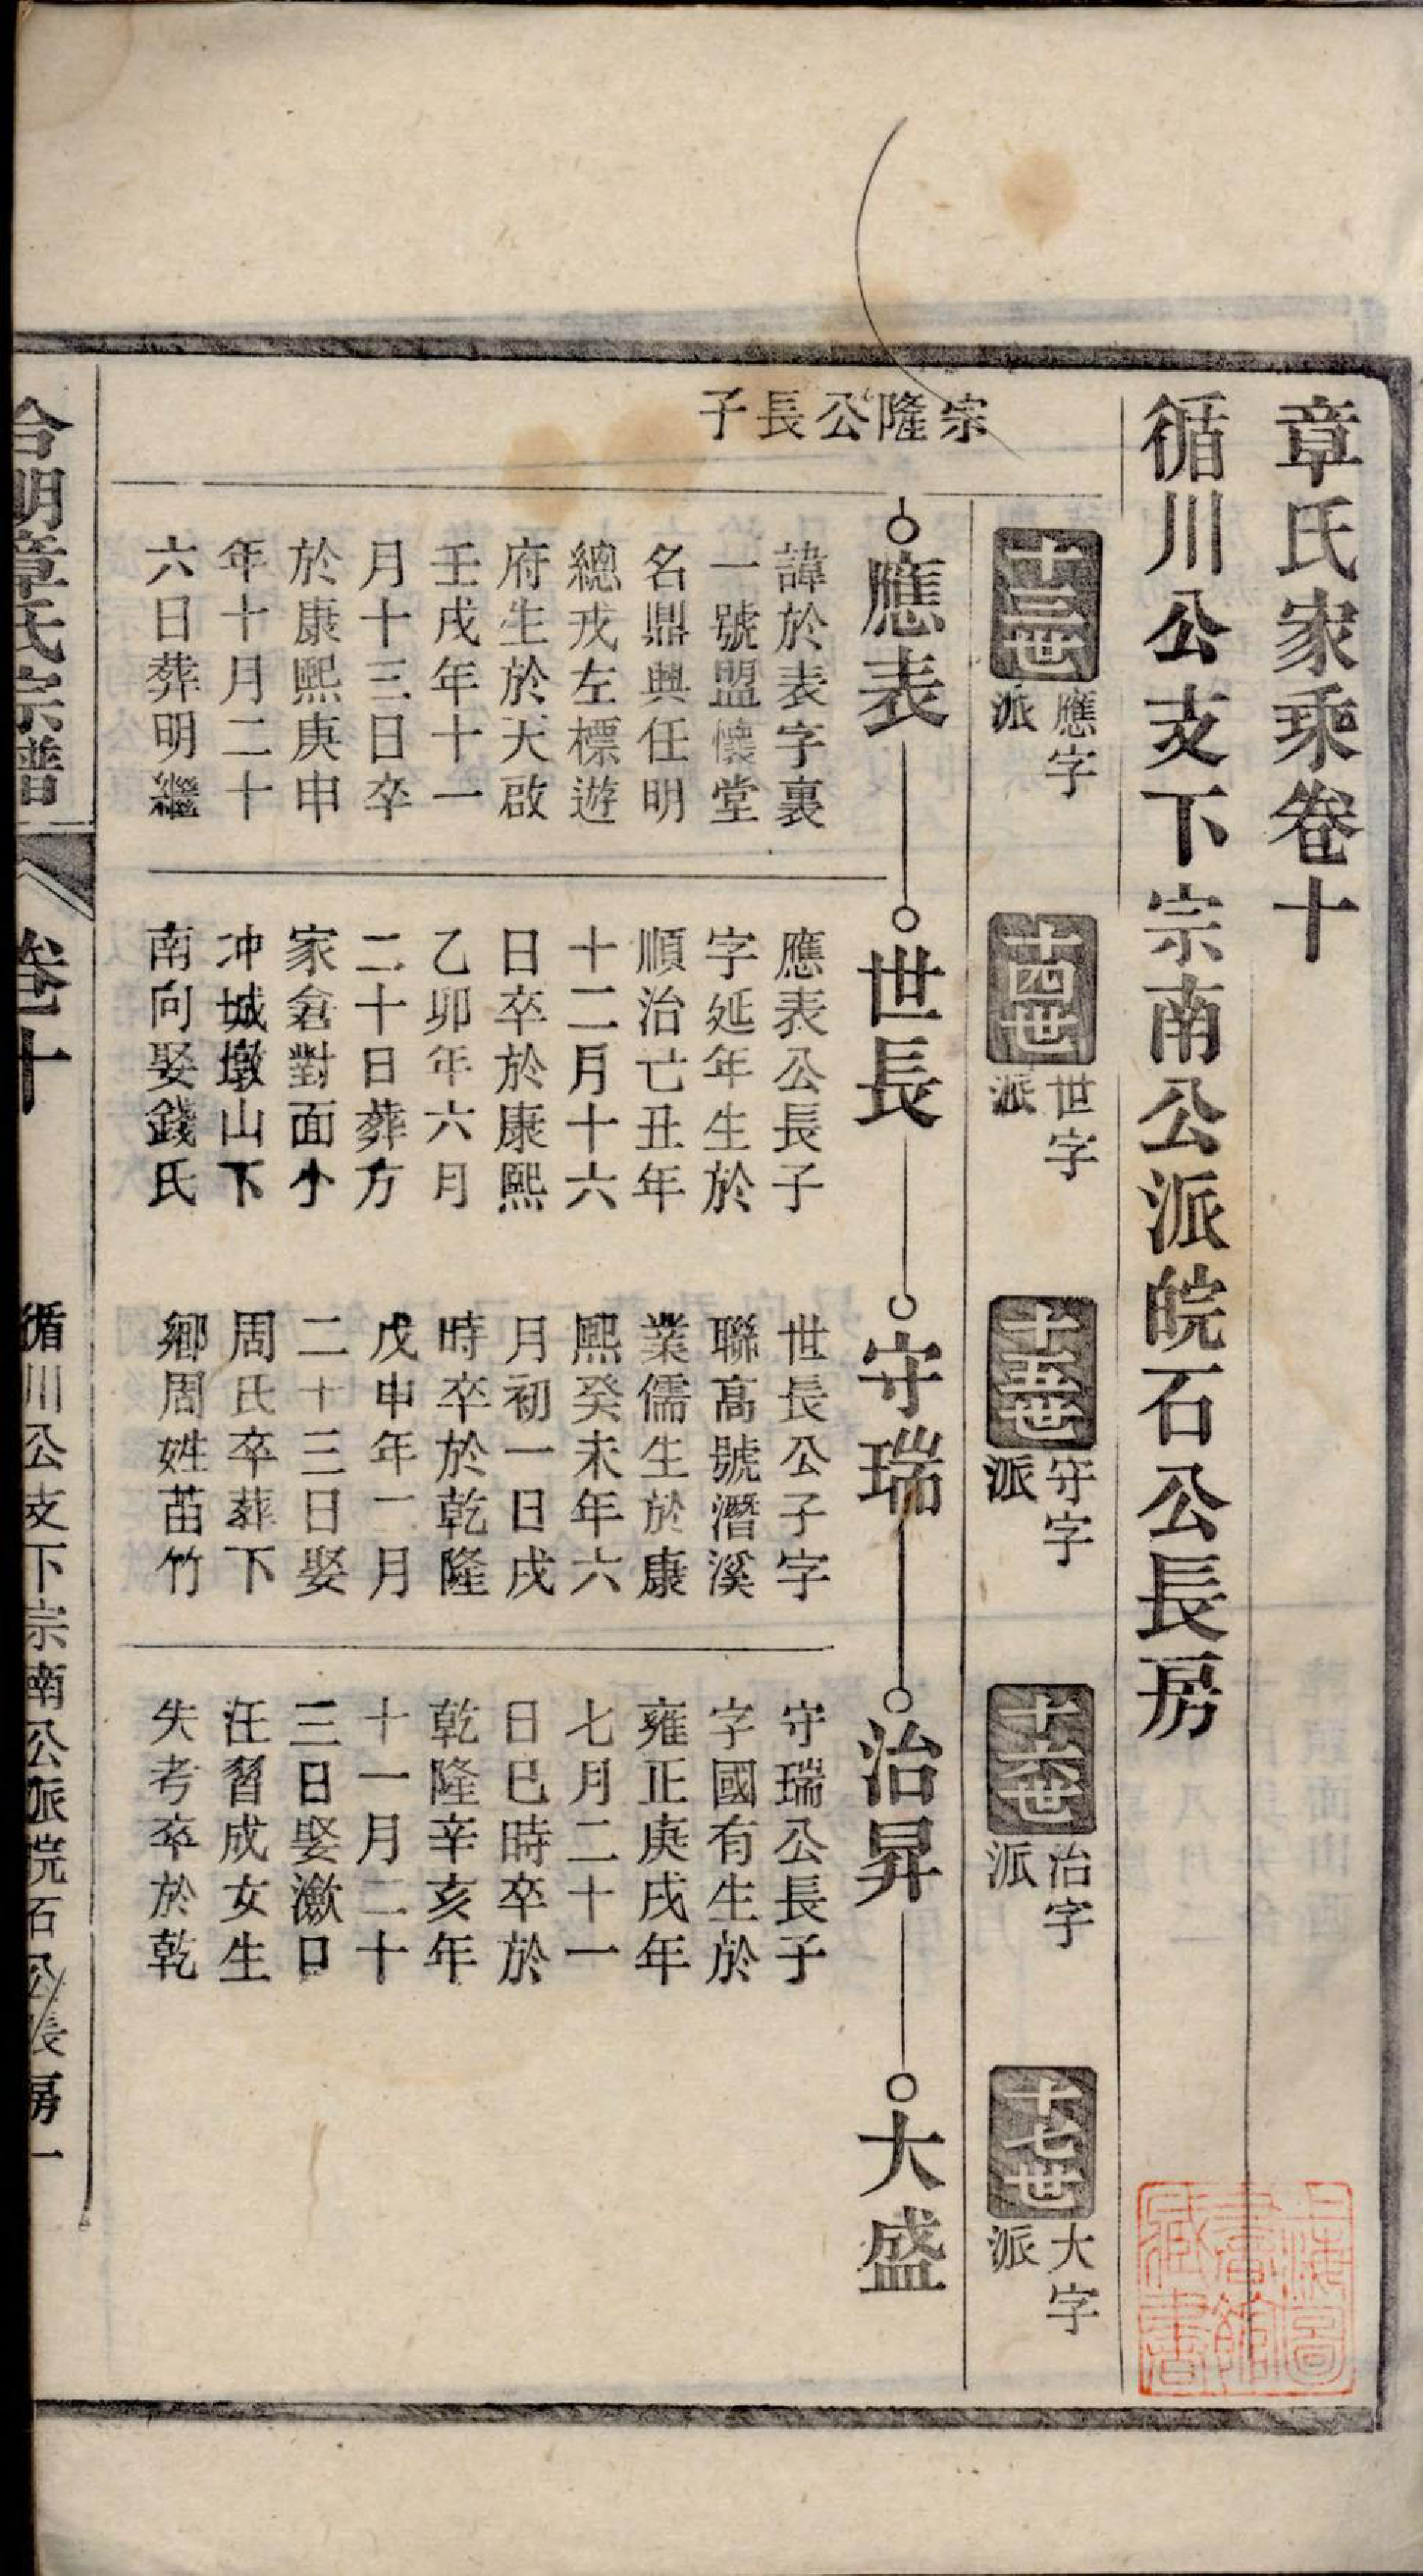 章氏家乘卷十
循川公支下宗南公派皖石公長房
十三世
應字
派
十四世
世字
派
十五世
守字
派
十六世
治字
派
十七世
大字
派
宗隆公長子
應表
諱於表字裏
一號盟懷堂
名鼎興任明
總戎左標遊
府生於天啟
壬戌年十一
月十三日卒
於康熙庚申
年十月二十
六日葬明繼
世長
應表公長子
字延年生於
順治亡丑年
十二月十六
日卒於康熙
乙卯年六月
二十日葬方
家倉對面小
冲城墩山下
南向娶錢氏
守瑞
世長公子字
聯高號潛溪
業儒生於康
熙癸未年六
月初一日戌
時卒於乾隆
戊申年二月
二十三日娶
周氏卒葬下
鄉周姓苗竹
治昇
守瑞公長子
字國有生於
雍正庚戌年
七月二十一
日巳時卒於
乾隆辛亥年
十一月二十
三日娶潋口
汪習成女生
失考卒於乾
大盛
合明章氏宗譜
卷十
循川公支下宗南公派皖石公長房一
上海圖書館藏書